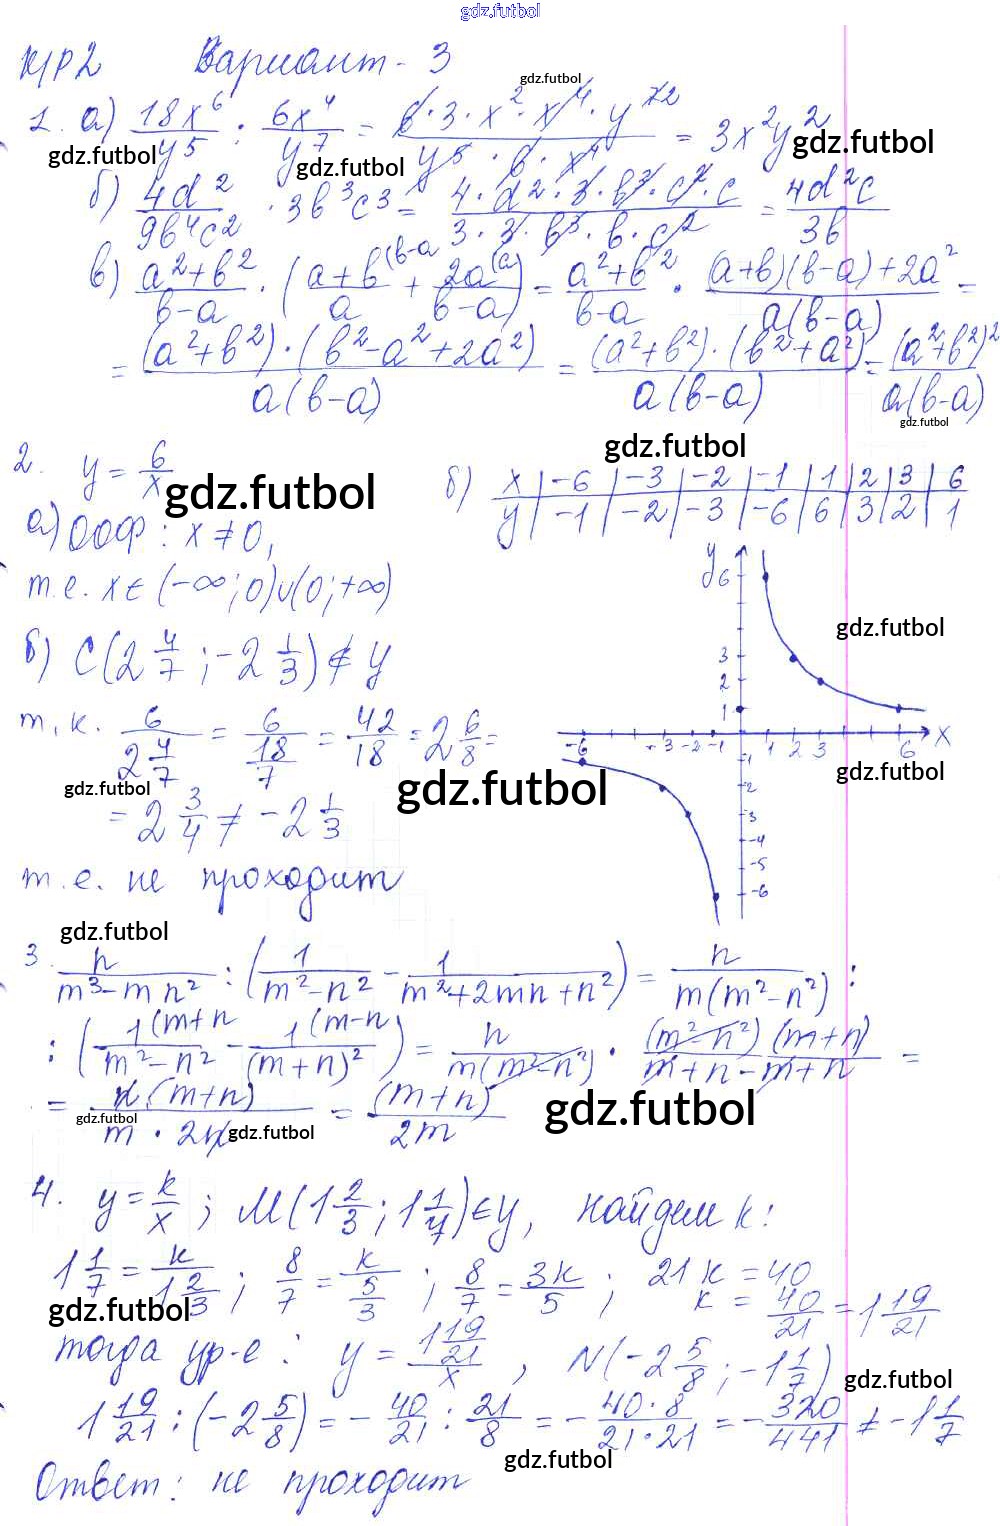 gdz.futbol
КР2 Вариант - 3
gdz.futbol
1. а) 18x⁶/y⁵ : 6x⁴/y⁷ = 6·3·x²·x⁴·y⁵⁺²/y⁵·6·x⁴ = 3x²y²
gdz.futbol gdz.futbol gdz.futbol
б) 4d²/9b⁴c² · 3b³c³ = 4·d²·3·b³·c²·c/3·3·b³·b·c² = 4d²c/3b
в) a²+b²/b-a · (a+b/a (b-a + 2a/b-a (a) = a²+b²/b-a · (a+b)(b-a)+2a²/a(b-a) =
= (a²+b²)·(b²-a²+2a²)/a(b-a) = (a²+b²)·(b²+a²)/a(b-a) = (a²+b²)²/a(b-a)
gdz.futbol
gdz.futbol
2. y = 6/x б) x | -6 | -3 | -2 | -1 | 1 | 2 | 3 | 6
gdz.futbol
y | -1 | -2 | -3 | -6 | 6 | 3 | 2 | 1
а) ООФ : x ≠ 0,
т.е. x ∈ (-∞; 0)∪(0; +∞)
y 6 3 2 1
-6 -3 -2 -1 1 2 3 6 x
-1 -2 -3 -4 -5 -6
gdz.futbol
б) C(2 4/7 ; -2 1/3) ∉ y
т.к. 6/2 4/7 = 6/18/7 = 42/18 = 2 6/8 =
gdz.futbol gdz.futbol gdz.futbol
= 2 3/4 ≠ -2 1/3
т.е. не проходит
gdz.futbol
3. n/m³-mn² : (1/m²-n² - 1/m²+2mn+n²) = n/m(m²-n²) :
: (1/m²-n² (m+n - 1/(m+n)² (m-n) = n/m(m²-n²) · (m²-n²)(m+n)/m+n-m+n =
= n(m+n)/m·2n = (m+n)/2m
gdz.futbol gdz.futbol gdz.futbol
4. y = k/x ; M(1 2/3 ; 1 1/7) ∈ y, найдем k:
1 1/7 = k/1 2/3 ; 8/7 = k/5/3 ; 8/7 = 3k/5 ; 21k = 40
gdz.futbol
k = 40/21 = 1 19/21
тогда ур-е : y = 1 19/21/x , N(-2 5/8 ; -1 1/7)
gdz.futbol
1 19/21 : (-2 5/8) = - 40/21 : 21/8 = - 40·8/21·21 = - 320/441 ≠ -1 1/7
gdz.futbol
Ответ: не проходит